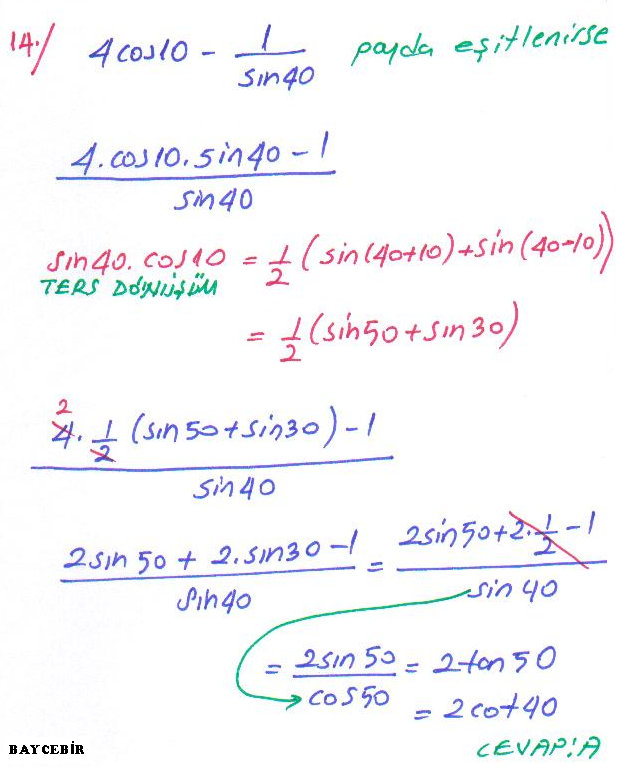 14.) 4cos10 - 1/sin40 payda eşitlenirse
4.cos10.sin40 - 1 / sin40
sin40.cos10 = 1/2 (sin(40+10)+sin(40-10))
TERS DÖNÜŞÜM
= 1/2 (sin50+sin30)
2
4.1/2 (sin50+sin30) - 1 / sin40
2sin50 + 2.sin30 - 1 / sin40 = 2sin50+2.1/2 - 1 / sin40
= 2sin50 / cos50 = 2tan50
= 2cot40
CEVAP:A
BAYCEBİR